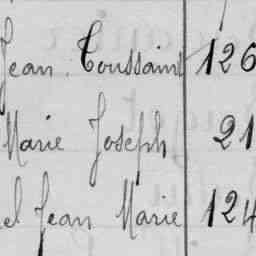 Jean Toussaint 126
Marie Joseph 21
el Jean Marie 124